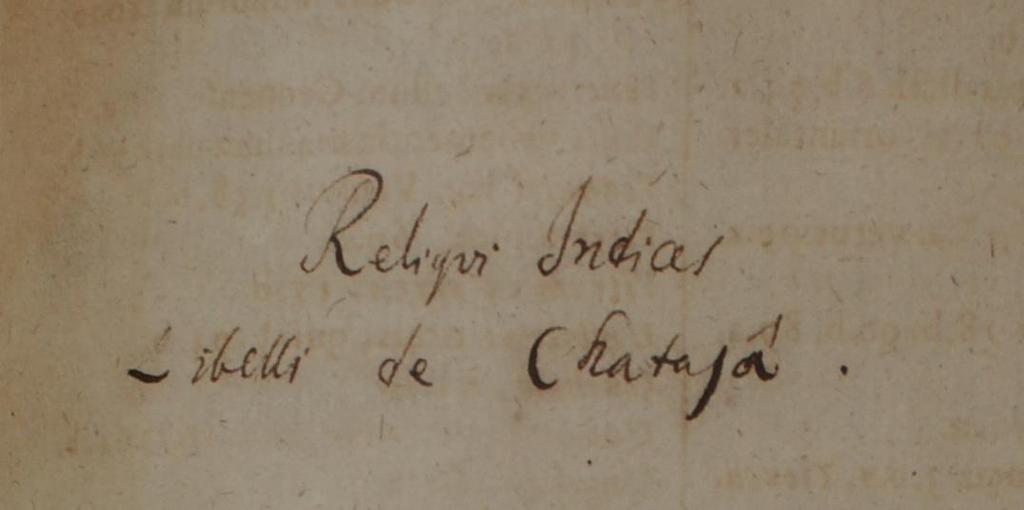 Reliqvi Indices
Libelli de Chatajâ .